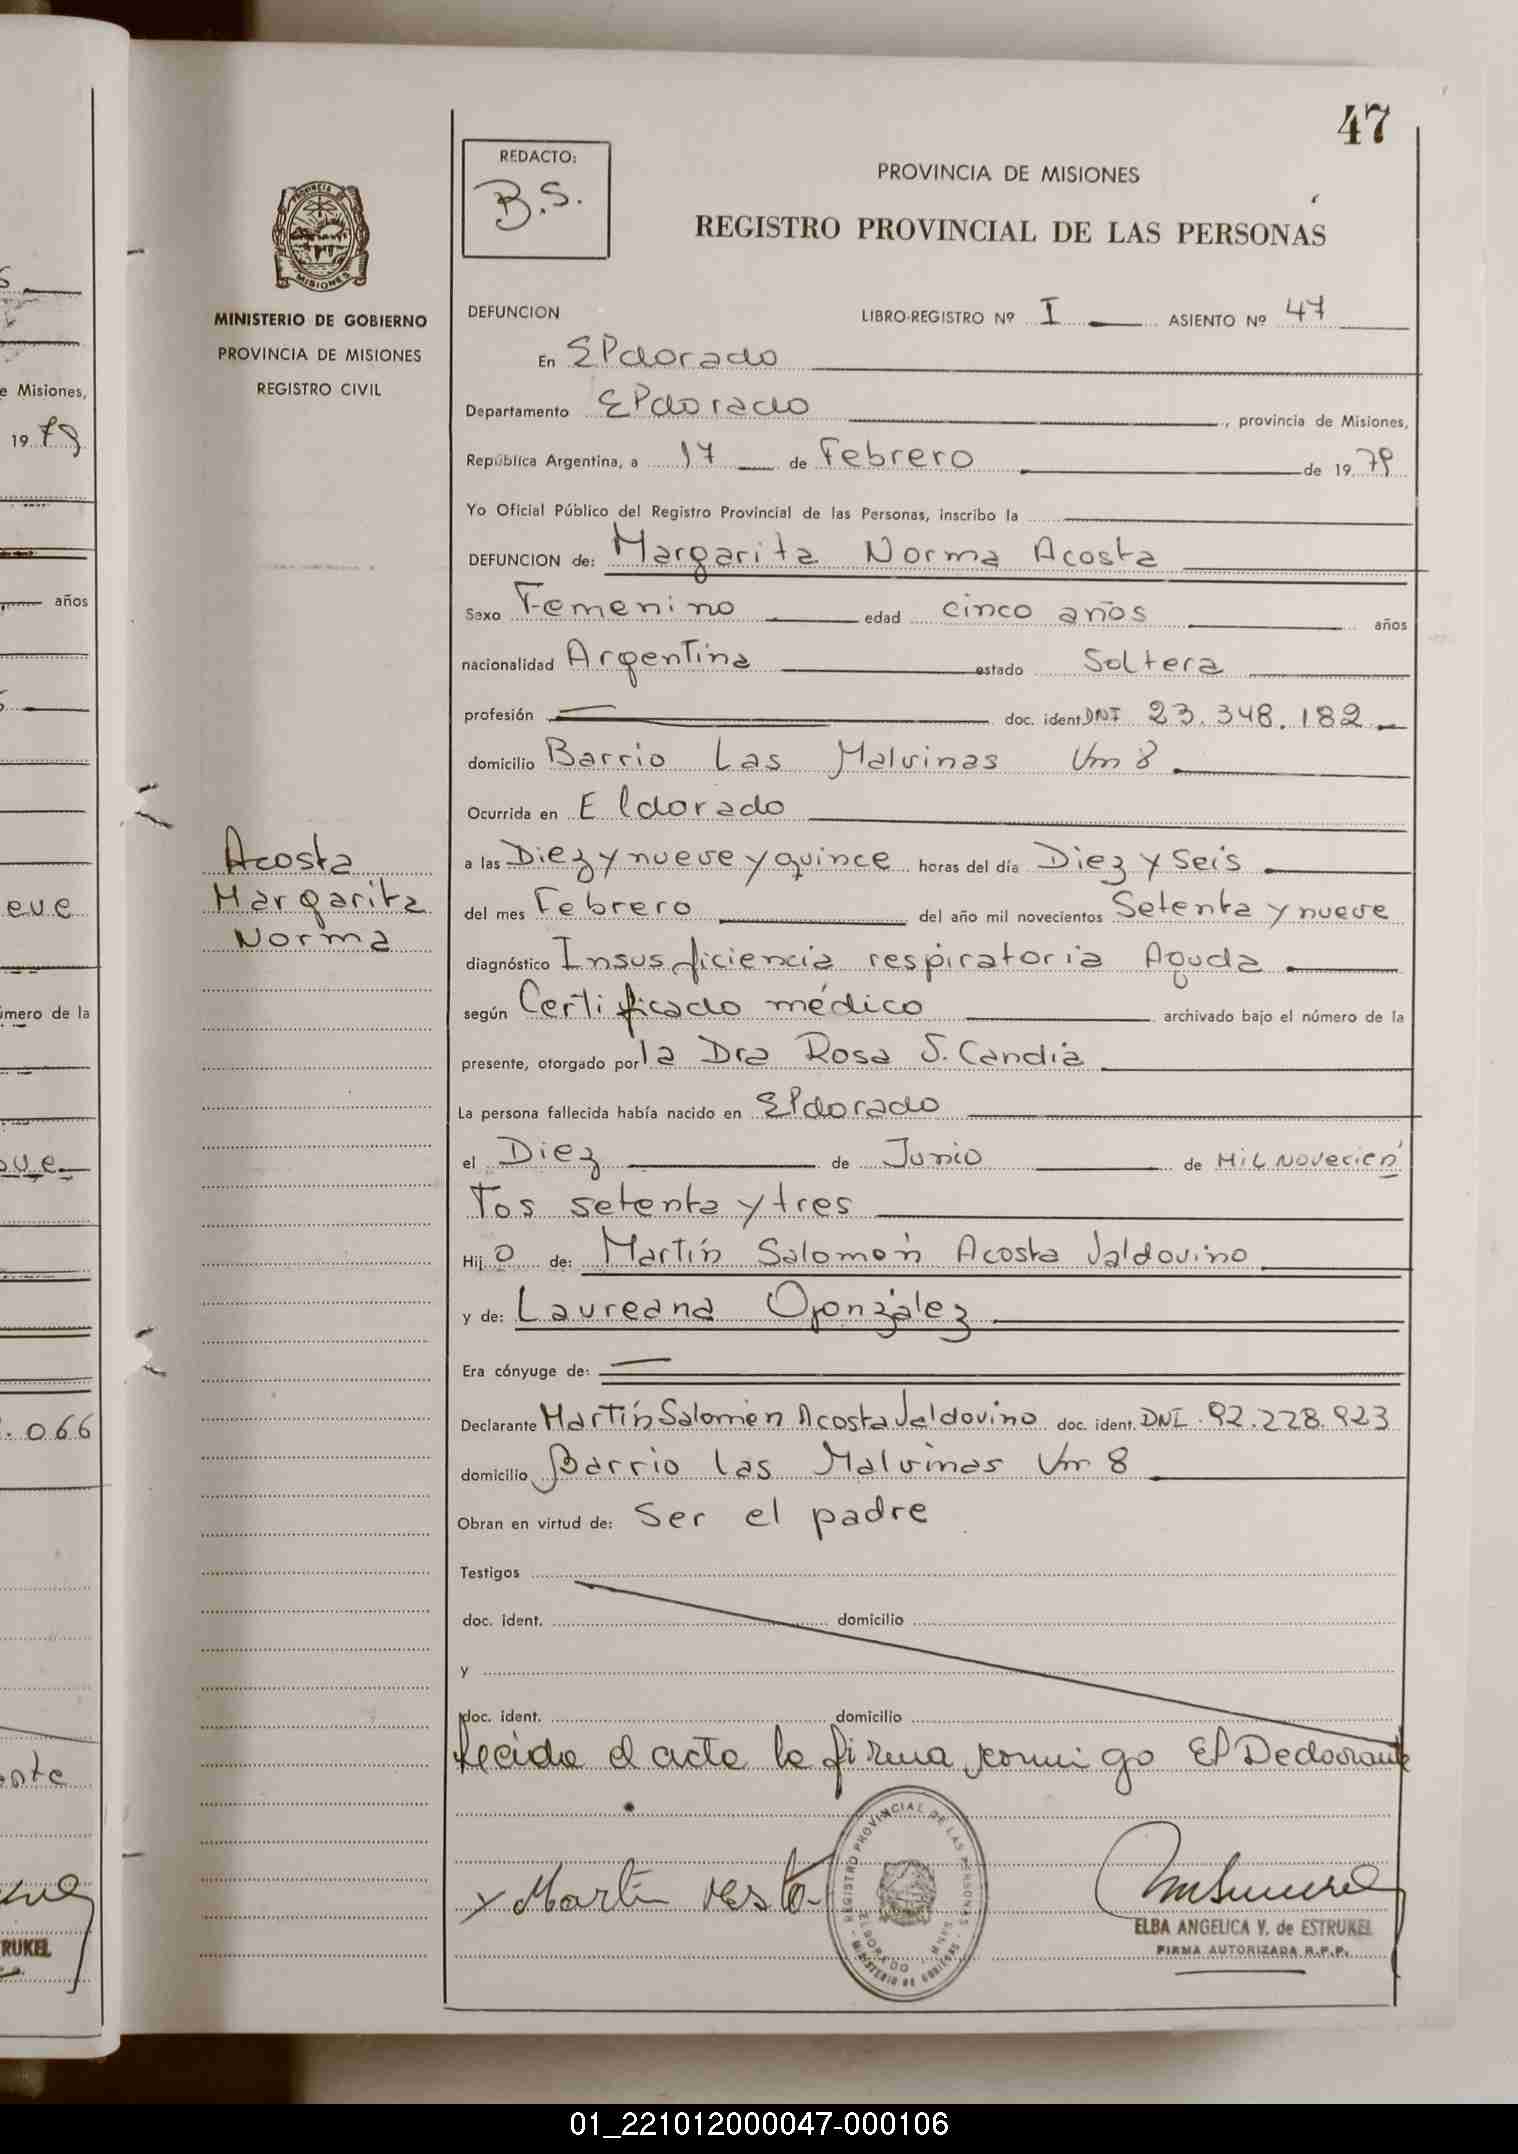 47
REDACTO:
B.S.
PROVINCIA DE MISIONES
REGISTRO PROVINCIAL DE LAS PERSONAS
MINISTERIO DE GOBIERNO
PROVINCIA DE MISIONES
REGISTRO CIVIL
DEFUNCION
LIBRO-REGISTRO Nº I ASIENTO Nº 47
En Eldorado
Departamento Eldorado, provincia de Misiones,
República Argentina, a 17 de Febrero de 1979
Yo Oficial Público del Registro Provincial de las Personas, inscribo la
DEFUNCION de: Margarita Norma Acosta
Sexo Femenino edad cinco años años
nacionalidad Argentina estado Soltera
profesión doc. ident. DNI 23.348.182
domicilio Barrio Las Malvinas Km 8
Ocurrida en Eldorado
a las Diez y nueve y quince horas del día Diez y Seis
del mes Febrero del año mil novecientos Setenta y nueve
diagnóstico Insuficiencia respiratoria Aguda
según Certificado médico archivado bajo el número de la
presente, otorgado por la Dra Rosa S. Candia
La persona fallecida había nacido en Eldorado
el Diez de Junio de Mil novecien
tos setenta y tres
Hijo de: Martín Salomón Acosta Valdovino
y de: Laureana González
Era cónyuge de:
Declarante Martín Salomón Acosta Valdovino doc. ident. DNI. 92.228.923
domicilio Barrio las Malvinas Km 8
Obran en virtud de: Ser el padre
Testigos
doc. ident. domicilio
y
doc. ident. domicilio
Leída el acta la firma conmigo El Declarante
x Martin
REGISTRO PROVINCIAL DE LAS PERSONAS
ELDORADO
MINISTERIO DE GOBIERNO
ELBA ANGELICA V. de ESTRUKEL
FIRMA AUTORIZADA R.P.P.
Acosta
Margarita
Norma
e Misiones,
1979
años
eve
úmero de la
.066
RUKEL
01_221012000047-000106